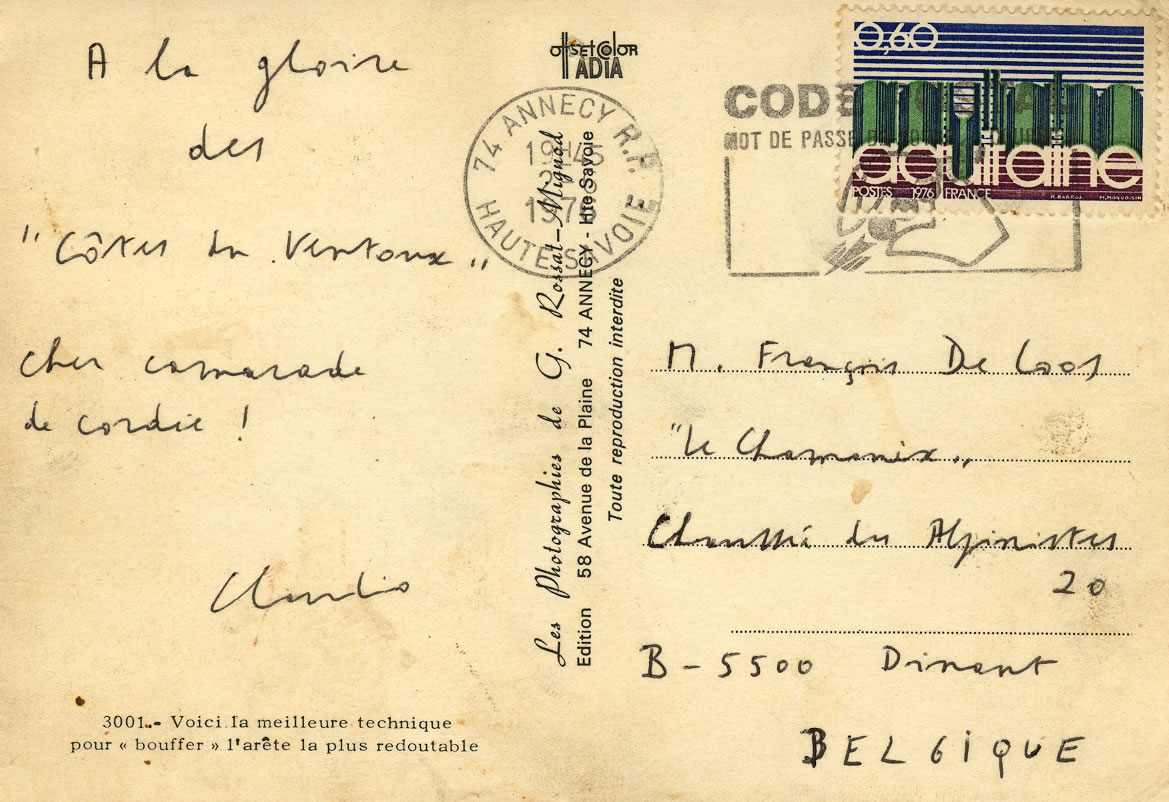 A la gloire
des
"Côtes du Ventoux"
Cher camarade
de cordée !
Claudio
3001.- Voici la meilleure technique
pour « bouffer » l'arête la plus redoutable
offset color
ADIA
Les Photographies de G. Rossat-Mignod
Edition 58 Avenue de la Plaine 74 ANNECY - Hte Savoie
Toute reproduction interdite
74 ANNECY R.P.
19H45
HAUTE-SAVOIE
CODE POSTAL
MOT DE PASSE
0,60
aquitaine
POSTES 1976 FRANCE
M. François De Loos
"Le Chamonix"
Chaussée des Alpinistes
20
B - 5500 Dinant
BELGIQUE